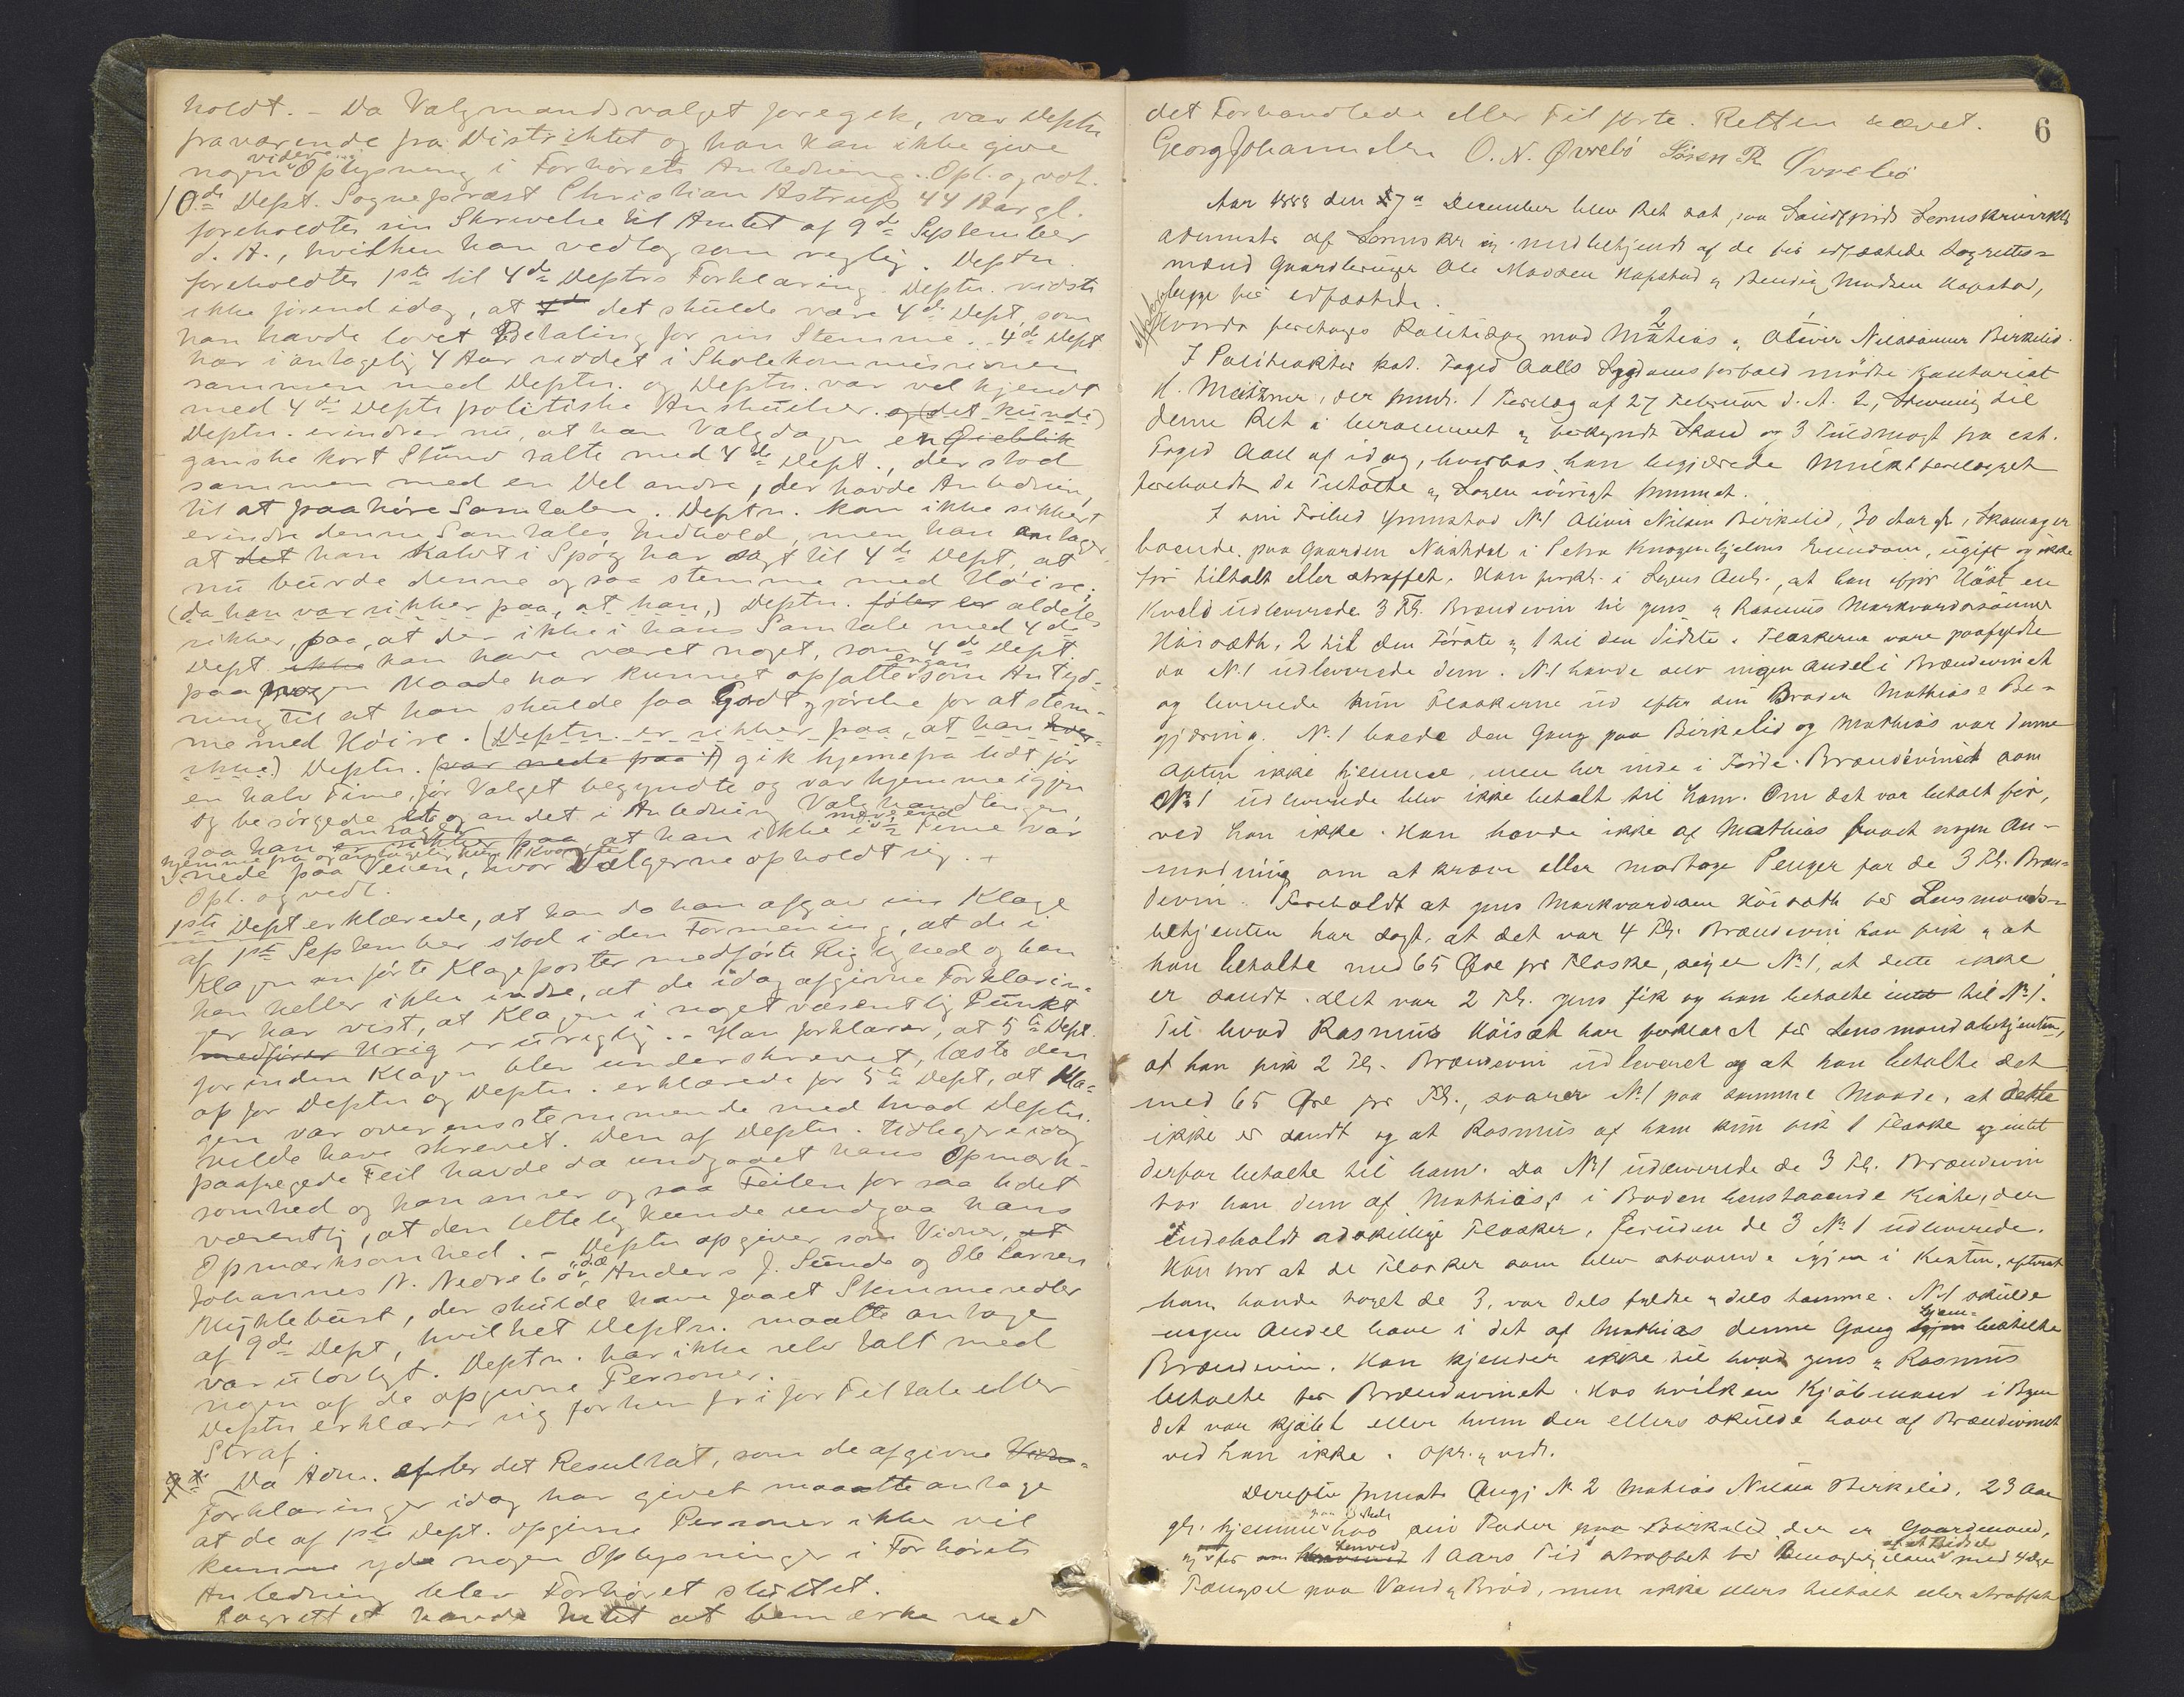 holdt. – Da Valgmandsvalget foregik, var Deptn
fraværende fra Distriktet og han kan ikke give
nogen videre Oplysning i Forhørets Anledning. Opl. og vedt.
10de Dept. Sogneprest Christian Astrup 44 Aar gl.
foreholdtes sin Skrivelse til Amtet af 9de September
d. A., hvilken han vedtog som rigtig. Deptn.
foreholdtes 1ste til 4de Deptrs Forklaring. Deptn. vidste
ikke førend idag, at det skulde være 4de Dept, som
han havde lovet Betaling for sin Stemme. 4de Dept
har i antagelig 4 Aar siddet i Skolekommissionen
sammen med Deptn. og Deptn. var vel kjendt
med 4de Depts politiske Anskuelser. og (det kunde)
Deptn. erindrer nu, at han Valgdagen en Øieblik
ganske kort Stund talte med 4de Dept., der stod
sammen med en Del andre, der havde Anledning
til at paahøre Samtalen. Deptn. kan ikke sikkert
erindre denne Samtales Indhold, men han antager
at det han halvt i Spøg har sagt til 4de Dept, at
nu burde denne ogsaa stemme med Høire.
(da han var sikker paa, at han,) Deptn. føler er aldeles
sikker, paa, at der ikke i hans Samtale med 4de
Dept. ikke kan have været noget, som 4de Dept
paa nogen Maade har kunnet opfatte som Antyd-
ning til at han skulde faa Godtgjørelse for at stem-
me med Høire. (Deptn. er sikker paa, at han
ikke) Deptn. (var nede paa) gik hjemmefra lidt før
en halv Time, før Valget begyndte og var hjemme igjen
og besørgede et og andet i Anledning Valghandlingen,
saa han er sikker paa antager at han ikke i mere end ½ Time var
nede paa Veien, hvor Vælgerne opholdt sig.
Opl. og vedt.
1ste Dept erklærede, at han da han afgav sin Klage
af 1ste September stod i den Formening, at de i
Klagen anførte Klageposter medførte Rigtighed og han
kan heller ikke indse, at de idag afgivne Forklarin-
ger har vist, at Klagen i noget væsentlig Punkt
medfører Urig er urigtig. – Han forklarer, at 5te Dept.
forinden Klagen blev underskrevet, læste den
op for Deptn og Deptn. erklærede for 5te Dept, at Kla-
gen var overensstemmende med hvad Deptn.
vilde have skrevet. Den af Deptn. tidligere idag
paapegede Feil havde da undgaaet hans Opmærk-
somhed og han anser ogsaa Feilen for saa lidet
væsentlig, at den lettelig kunde undgaa hans
Opmærksomhed. – Deptn opgiver som Vidner, at
Johannes N. Nedrebø, Anders J. Sunde og Ole Larsen
Myklebust, der skulde have faaet Stemmesedler
af 9de Dept, hvilket Deptn. maatte antage
var ulovligt. Deptn. har ikke selv talt med
nogen af de opgivne Personer.
Deptn erklærer sig forhen fri for Tiltale eller
Straf.
Da Adm. efter det Resultat, som de afgivne
Forklaringer idag har givet maatte antage
at de af 1ste Dept. opgivne Personer ikke vil
kunne yde nogen Oplysninger i Forhørets
Anledning blev Forhøret sluttet.
Lagrettet havde intet at bemærke ved
det Forhandlede eller Tilførte. Retten hævet.
Georg Johannesen O. N. Øvrebö Sören R Øvrebö
6
Aar 1888 den 7de December blev Ret sat paa Søndfjords Sorenskriverkt
administr. af Sorenskr og medbetjent af de før edfæstede Lagrettes-
mænd Gaardbruger Ole Madsen Hapstad og Bendix Madsen Hapstad,
begge før edfæstede.
Hvorda foretoges Politisag mod Mathias og Oliver Nilssønner Birkelid.
I Politiakter kst. Foged Aalls Sygdomsforfald mødte Kontorist
der fremlagde 1 Forelæg af 27 Februar d. A. 2, Stevning til
denne Ret i berammet og forkyndt Stand og 3 Fuldmagt fra kst.
Foged Aall af idag, hvorhos han begjærede Mulktforelægget
foreholdt de Tiltalte og Sagen iøvrigt fremmet.
I sin Frihed fremstod No 1 Oliver Nilsen Birkelid, 30 Aar gl, Skomager
boende paa Gaarden Naustdal i Petra Knagenhjelms Eiendom, ugift og ikke
før tiltalt eller straffet. Han forkl. i Sagens Anl., at han ifjor Høst en
Kveld udleverede 3 Fl. Brændevin til Jens og Rasmus Markvardssønner
Høisæth, 2 til den Første og 1 til den Sidste. Flaskerne vare paafyldte
da No 1 udleverede dem. No 1 havde selv ingen Andel i Brændevinet
og leverede kun Flaskerne ud efter sin Broder Mathias's Be-
gjæring. No 1 boede den Gang paa Birkelid og Mathias var denne
Aften ikke hjemme, men her inde i Førde. Brændevinet som
No 1 udleverede blev ikke betalt til ham. Om det var betalt før,
ved han ikke. Han havde ikke af Mathias faaet nogen An-
modning om at kræve eller modtage Penger for de 3 Fl. Bræn-
devin. Foreholdt at Jens Markvardsen Høisæth for Lensmands-
betjenten har sagt, at det var 4 Fl. Brændevin han fik og at
han betalte med 65 Øre pr Flaske, siger No 1, at dette ikke
er sandt. Det var 2 Fl. Jens fik og han betalte intet til No 1.
Til hvad Rasmus Høisæt har forklaret for Lensmandsbetjenten,
at han fik 2 Fl. Brændevin udleveret og at han betalte det
med 65 Øre pr Fl., svarer No 1 paa samme Maade, at dette
ikke er sandt og at Rasmus af ham kun fik 1 Flaske og intet
derfor betalte til ham. Da No 1 udleverede de 3 Fl. Brændevin
tog han dem af Mathias's i Boden henstaaende Kiste, der
indeholdt adskillige Flasker, foruden de 3 No 1 udleverede.
Han tror at de Flasker som blev staaende igjen i Kisten, efterat
han havde taget de 3, var dels fyldte og dels tomme. No 1 skulde
ingen Andel have i det af Mathias denne Gang hjem- bestilte
Brændevin. Han kjender ikke til hvad Jens og Rasmus
betalte for Brændevinet. Hos hvilken Kjøbmand i Byen
det var kjøbt eller hvem der ellers skulde have af Brændevinet
ved han ikke. Opl. og vedt.
Derefter fremstod Ang. No 2 Mathias Nilsen Birkelid, 23 Aar
gl. hjemme hos sin Fader paa Birkelid der er Gaardmand,
og før henved 1 Aars Tid straffet for med 4 Dage
Fængsel paa Vand og Brød, men ikke ellers tiltalt eller straffet